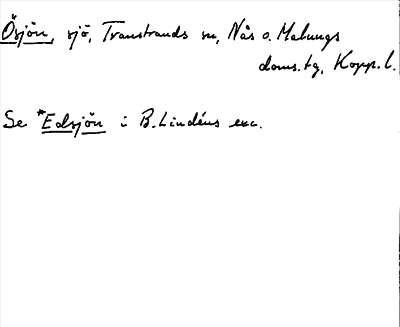 Ösjön, sjö, Transtrands sn, Nås o. Malungs
doms.tg, Kopp. l.
Se *Edsjön i B. Lindéns exc.